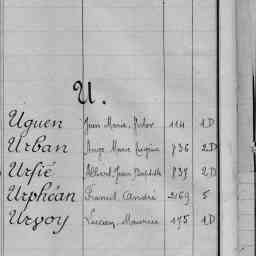 U.
Uguen Jean Marie, Victor 114 1D
Urban Ange Marie Eugène 836 2D
Ursié Albert Jean Baptiste 839 2D
Urphéan Francis André 2169 5
Urvoy Lucien Maurice 175 1D